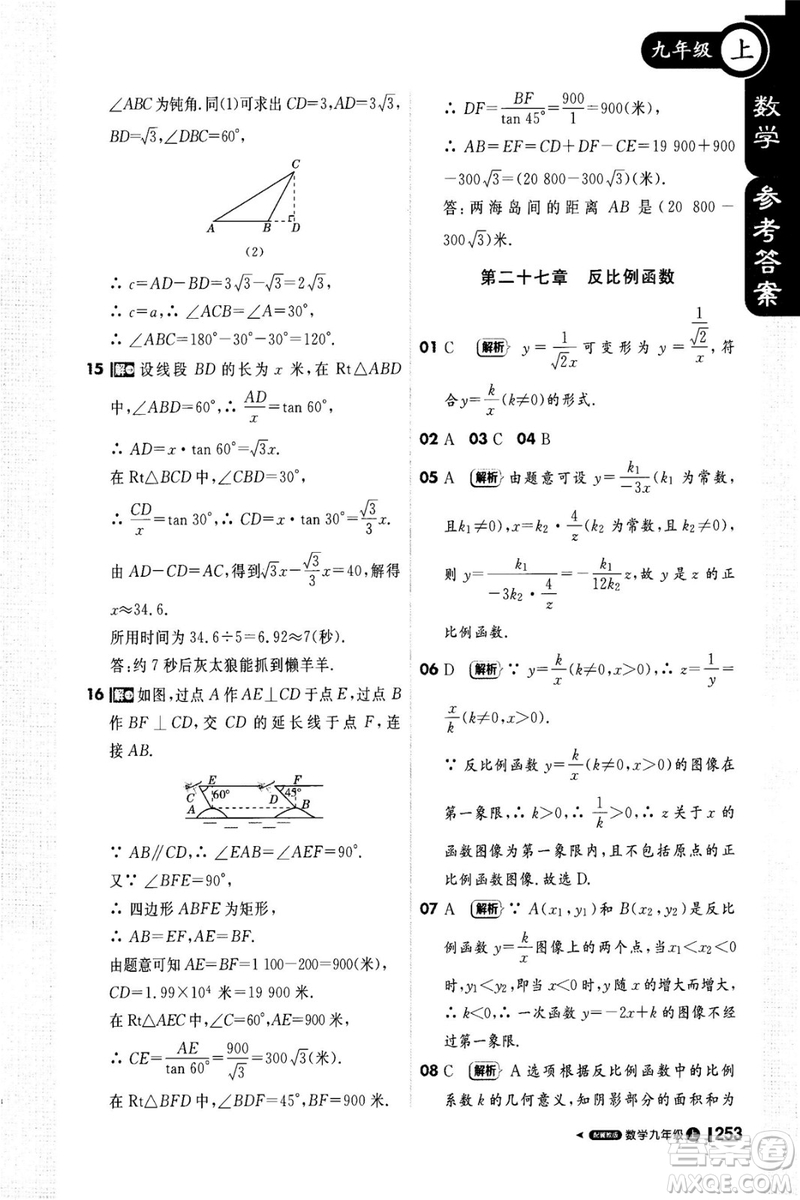 九年级 上
数学 参考答案
∠ABC为钝角.同(1)可求出CD=3,AD=3√3,
BD=√3,∠DBC=60°,
C
A B D
(2)
∴ c=AD-BD=3√3-√3=2√3,
∴ c=a,∴ ∠ACB=∠A=30°,
∴ ∠ABC=180°-30°-30°=120°.
15 解 设线段 BD 的长为 x 米,在 Rt△ABD
中,∠ABD=60°,∴ AD/x=tan 60°,
∴ AD=x·tan 60°=√3x.
在 Rt△BCD 中,∠CBD=30°,
∴ CD/x=tan 30°,∴ CD=x·tan 30°=√3/3x.
由 AD-CD=AC,得到√3x-√3/3x=40,解得
x≈34.6.
所用时间为 34.6÷5=6.92≈7(秒).
答:约 7 秒后灰太狼能抓到懒羊羊.
16 解 如图,过点 A 作 AE⊥CD 于点 E,过点 B
作 BF⊥CD,交 CD 的延长线于点 F,连
接 AB.
C E D F
60° 45°
A B
∵ AB∥CD,∴ ∠BAE=∠AEF=90°.
又∵ ∠BFE=90°,
∴ 四边形 ABFE 为矩形,
∴ AB=EF,AE=BF.
由题意可知 AE=BF=1 100-200=900(米),
CD=1.99×10⁴ 米=19 900 米.
在 Rt△AEC 中,∠C=60°,
∴ CE=AE/tan 60°=900/√3=300√3(米).
在 Rt△BFD 中,∠BDF=45°,BF=900 米,
∴ DF=BF/tan 45°=900/1=900(米),
∴ AB=EF=CD+DF-CE=19 900+900
-300√3=(20 800-300√3)(米).
答:两海岛间的距离 AB 是(20 800-
300√3)米.
第二十七章 反比例函数
01 C 解析 y=1/√2x 可变形为 y=1/√2/x,符
合y=k/x(k≠0)的形式.
02 A 03 C 04 B
05 A 解析 由题意可设 y=k₁/-3x(k₁ 为常数,
且k₁≠0),x=k₂·4/z(k₂ 为常数,且k₂≠0),
则 y=k₁/-3k₂·4/z=-k₁/12k₂z,故 y 是 z 的正
比例函数.
06 D 解析 ∵ y=k/x(k≠0,x>0),∴ z=1/y=
x/k(k≠0,x>0).
∵ 反比例函数 y=k/x(k≠0,x>0)的图像在
第一象限,∴ k>0,∴ 1/k>0,∴ z 关于 x 的
函数图像为第一象限内,且不包括原点的正
比例函数图像.故选 D.
07 A 解析 ∵ A(x₁,y₁)和 B(x₂,y₂)是反比
例函数 y=k/x图像上的两个点,当x₁<x₂<0
时,y₁<y₂,∴ x<0时,y 随 x 的增大而增大,
∴ k<0,∴ 一次函数 y=-2x+k 的图像不经
过第一象限.
08 C 解析 A 选项根据反比例函数中的比例
系数 k 的几何意义,知阴影部分的面积和为
配冀教版 数学九年级 上 253
作业精灵